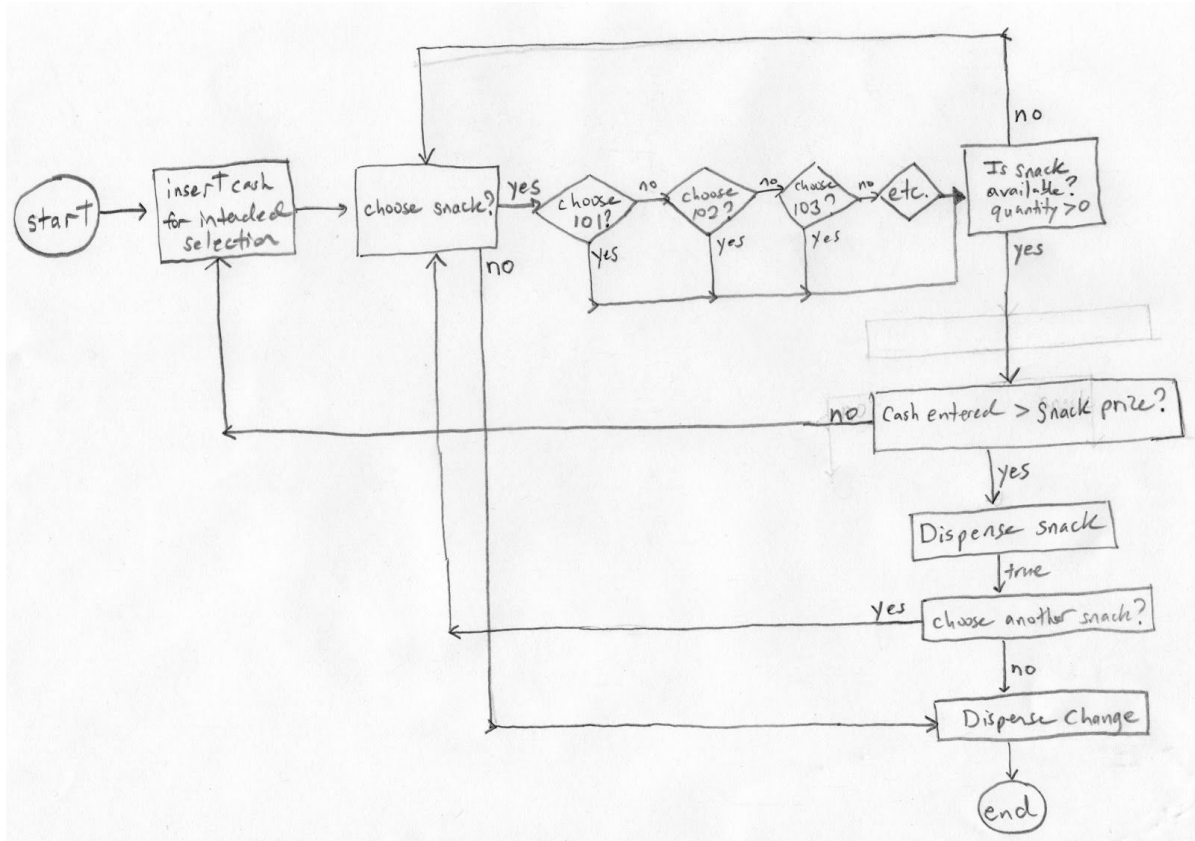 start
insert cash
for intended
selection
choose snack?
yes
no
choose
101?
yes
no
choose
102?
yes
no
choose
103?
yes
no
etc.
Is snack
available?
quantity >0
no
yes
Cash entered > snack prize?
no
yes
Dispense snack
true
choose another snack?
yes
no
Dispense Change
end